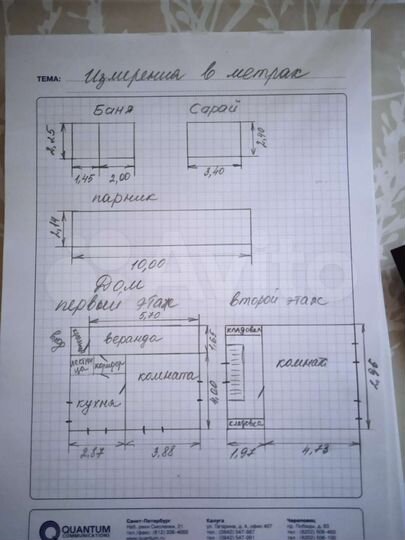 ТЕМА: Измерения в метрах
Баня
Сарай
2,25
2,40
1,45
2,00
3,40
парник
2,14
10,00
Дом
первый этаж
второй этаж
5,70
вход
веранда
1,65
кладовая
лестница
коридор
комната
комнат
кухня
4,00
2,96
2,87
3,88
1,97
4,73
QUANTUM
COMMUNICATIONS
Санкт-Петербург
Калуга
Череповец